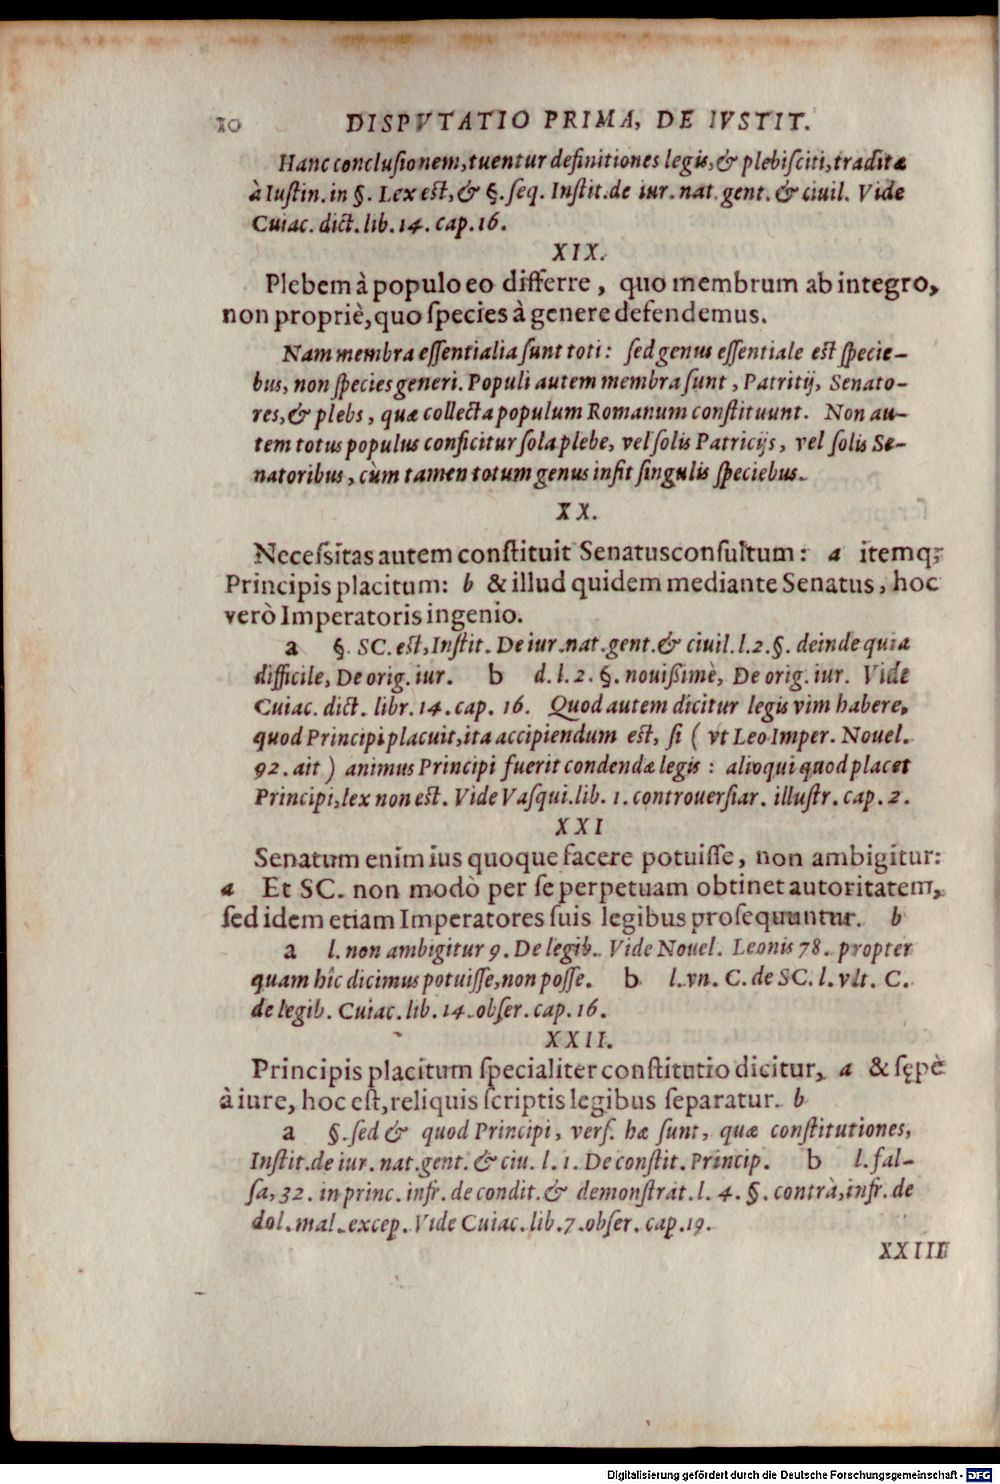 10 DISPVTATIO PRIMA, DE IVSTIT.
Hanc conclusionem, tuentur definitiones legis, & plebisciti, traditæ
à Iustin. in §. Lex est, & §. seq. Instit. de iur. nat. gent. & ciuil. Vide
Cuiac. dict. lib. 14. cap. 16.
XIX.
Plebem à populo eo differre, quo membrum ab integro,
non propriè, quo species à genere defendemus.
Nam membra essentialia sunt toti: sed genus essentiale est specie-
bus, non species generi. Populi autem membra sunt, Patritij, Senato-
res, & plebs, quæ collecta populum Romanum constituunt. Non au-
tem totus populus conficitur sola plebe, vel solis Patricijs, vel solis Se-
natoribus, cùm tamen totum genus insit singulis speciebus.
XX.
Necessitas autem constituit Senatusconsultum: a itemq;
Principis placitum: b & illud quidem mediante Senatus, hoc
verò Imperatoris ingenio.
a §. SC. est, Instit. De iur. nat. gent. & ciuil. l. 2. §. deinde quia
difficile, De orig. iur. b d. l. 2. §. nouissimè, De orig. iur. Vide
Cuiac. dict. libr. 14. cap. 16. Quod autem dicitur legis vim habere,
quod Principi placuit, ita accipiendum est, si ( vt Leo Imper. Nouel.
92. ait ) animus Principi fuerit condendæ legis : alioqui quod placet
Principi, lex non est. Vide Vasqui. lib. 1. controuersiar. illustr. cap. 2.
XXI
Senatum enim ius quoque facere potuisse, non ambigitur:
a Et SC. non modò per se perpetuam obtinet autoritatem,
sed idem etiam Imperatores suis legibus prosequuntur. b
a l. non ambigitur 9. De legib. Vide Nouel. Leonis 78. propter
quam hîc dicimus potuisse, non posse. b l. vn. C. de SC. l. vlt. C.
de legib. Cuiac. lib. 14. obser. cap. 16.
XXII.
Principis placitum specialiter constitutio dicitur, a & sępè
à iure, hoc est, reliquis scriptis legibus separatur. b
a §. sed & quod Principi, vers. hæ sunt, quæ constitutiones,
Instit. de iur. nat. gent. & ciu. l. 1. De constit. Princip. b l. fal-
sa, 32. in princ. infr. de condit. & demonstrat. l. 4. §. contrà, infr. de
dol. mal. excep. Vide Cuiac. lib. 7. obser. cap. 19.
XXIII
Digitalisierung gefördert durch die Deutsche Forschungsgemeinschaft - DFG